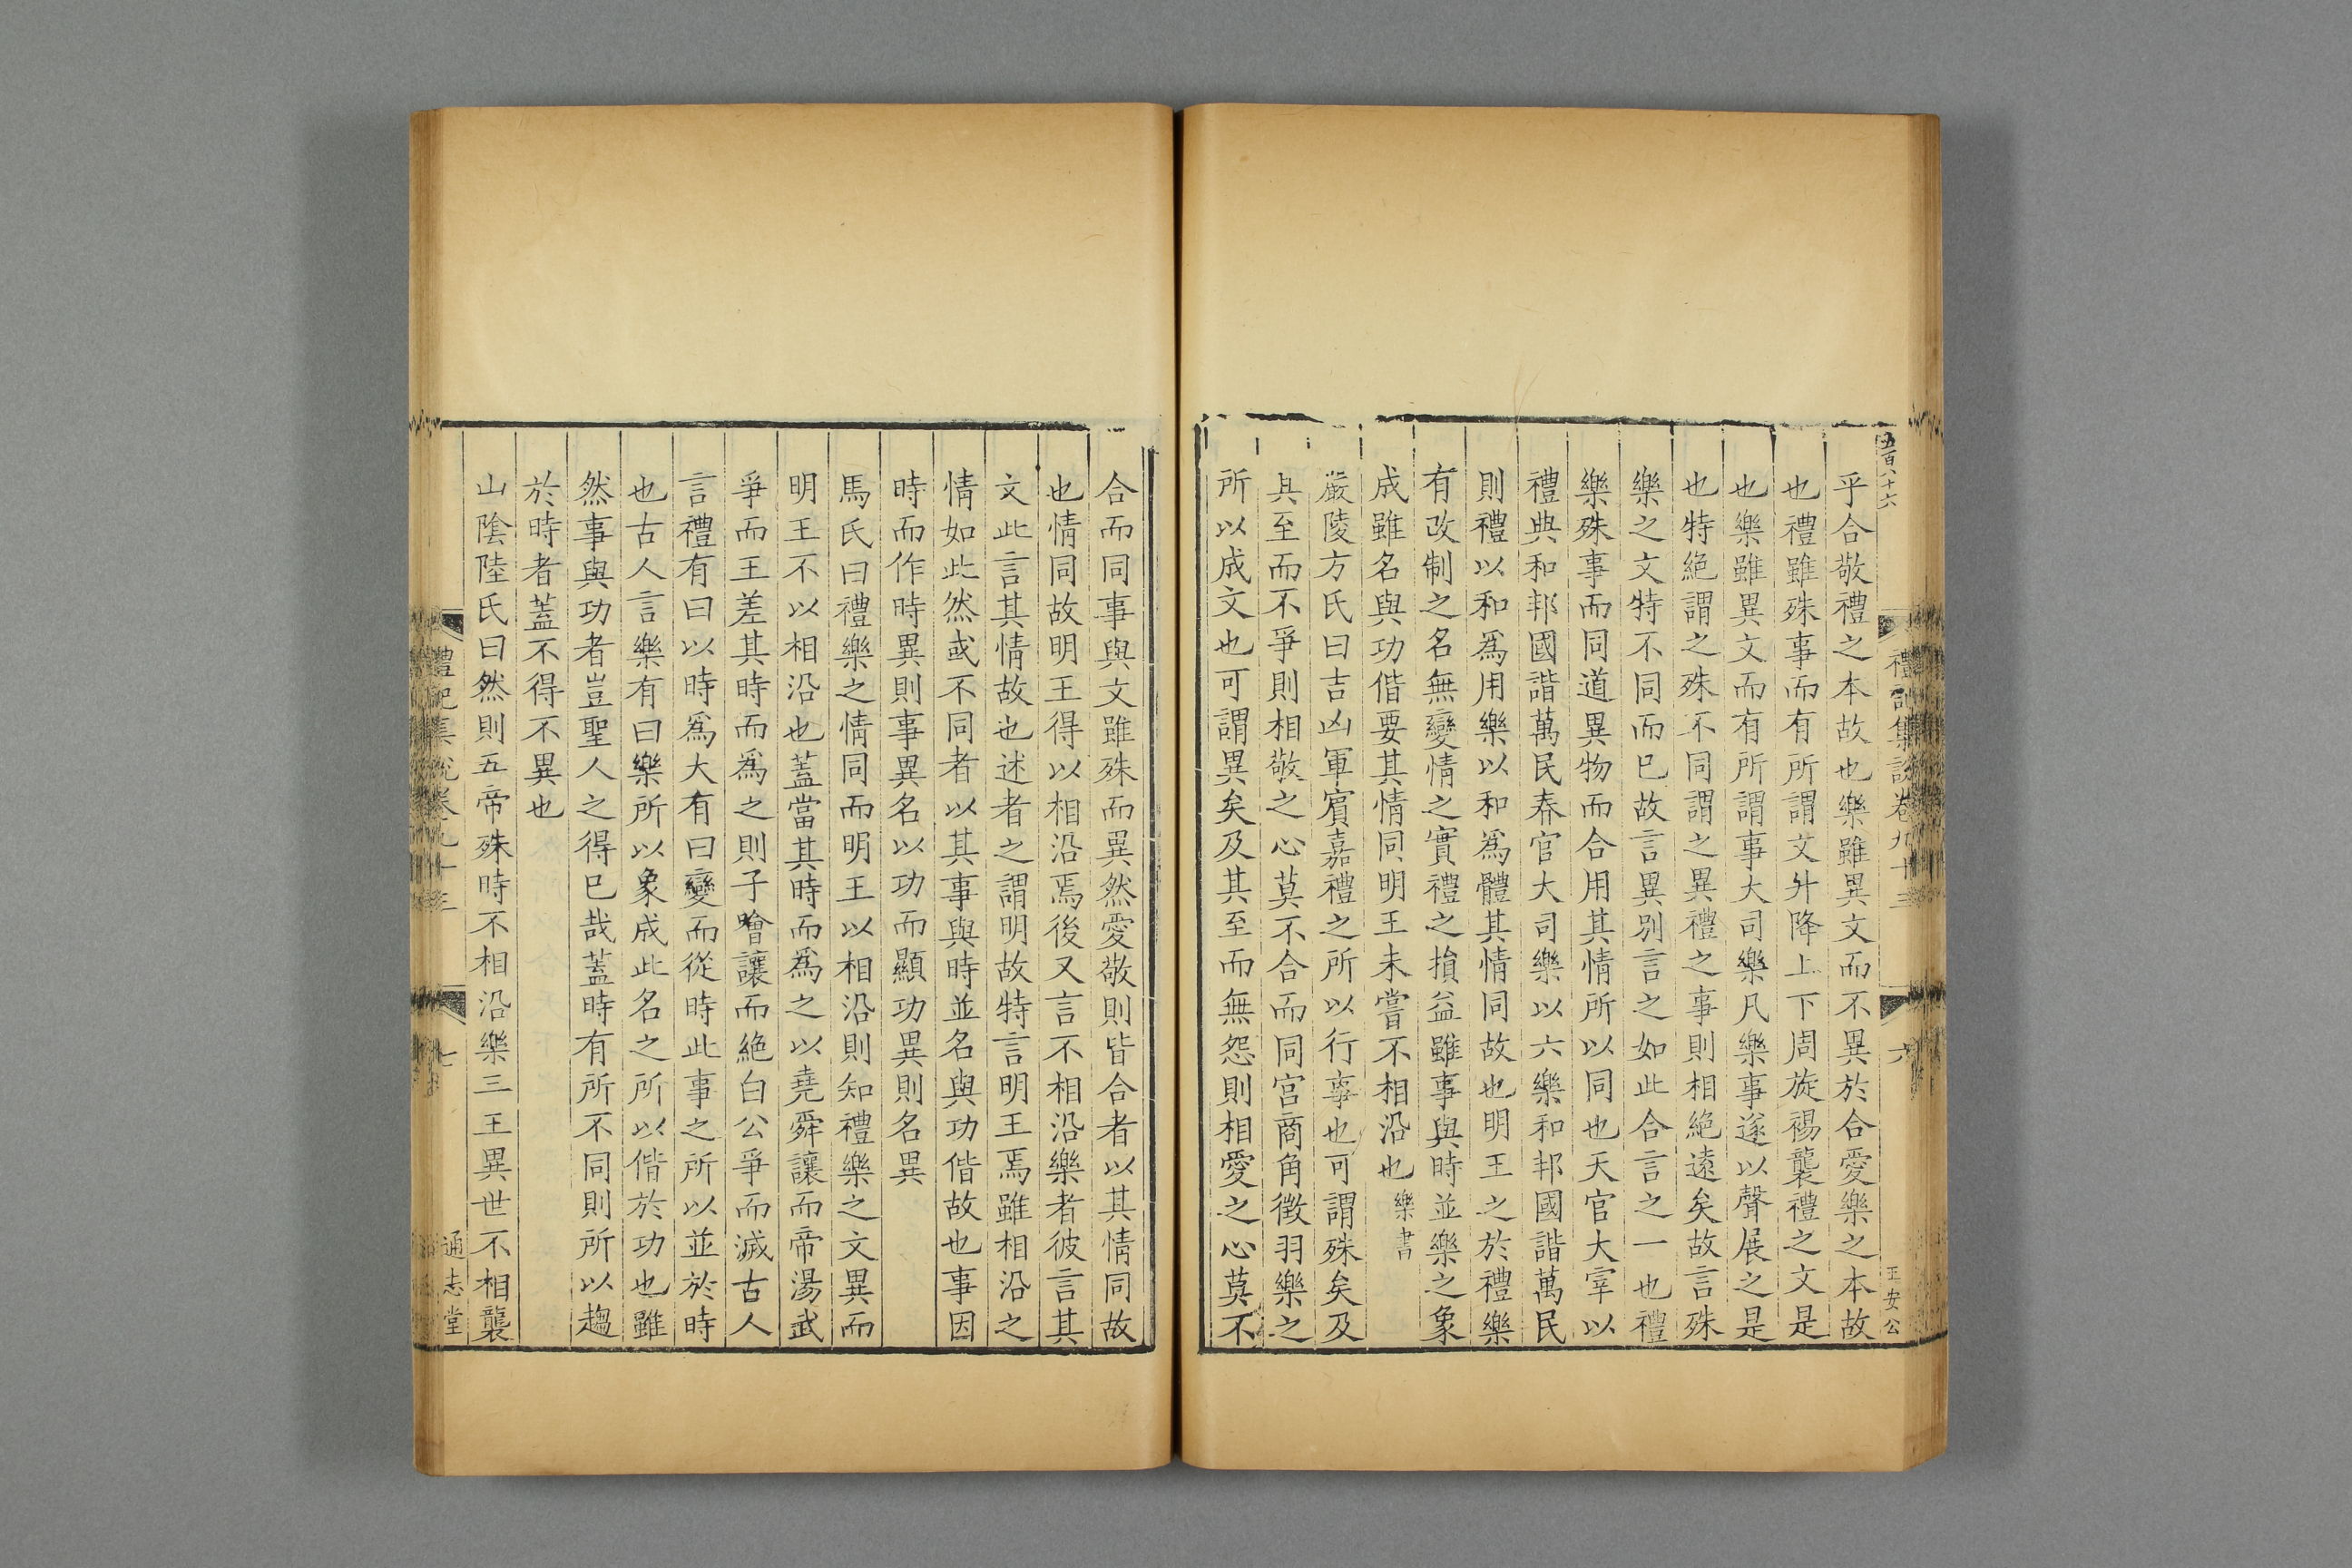 五百八十六
禮記集說卷九十三
六
王安公
乎合敬禮之本故也樂雖異文而不異於合愛樂之本故
也禮雖殊事而有所謂文升降上下周旋裼襲禮之文是
也樂雖異文而有所謂事大司樂凡樂事遂以聲展之是
也特絕謂之殊不同謂之異禮之事則相絕遠矣故言殊
樂之文特不同而已故言異別言之如此合言之一也禮
樂殊事而同道異物而合用其情所以同也天官大宰以
禮典和邦國諧萬民春官大司樂以六樂和邦國諧萬民
則禮以和爲用樂以和爲體其情同故也明王之於禮樂
有改制之名無變情之實禮之損益雖事與時並樂之象
成雖名與功偕要其情同明王未嘗不相沿也樂書
嚴陵方氏曰吉凶軍賓嘉禮之所以行事也可謂殊矣及
其至而不爭則相敬之心莫不合而同宮商角徵羽樂之
所以成文也可謂異矣及其至而無怨則相愛之心莫不
合而同事與文雖殊而異然愛敬則皆合者以其情同故
也情同故明王得以相沿焉後又言不相沿樂者彼言其
文此言其情故也述者之謂明故特言明王焉雖相沿之
情如此然或不同者以其事與時並名與功偕故也事因
時而作時異則事異名以功而顯功異則名異
馬氏曰禮樂之情同而明王以相沿則知禮樂之文異而
明王不以相沿也蓋當其時而爲之以堯舜讓而帝湯武
爭而王差其時而爲之則子噲讓而絕白公爭而滅古人
言禮有曰以時爲大有曰變而從時此事之所以並於時
也古人言樂有曰樂所以象成此名之所以偕於功也雖
然事與功者豈聖人之得已哉蓋時有所不同則所以趨
於時者蓋不得不異也
山陰陸氏曰然則五帝殊時不相沿樂三王異世不相襲
禮記集說卷九十三
七
通志堂